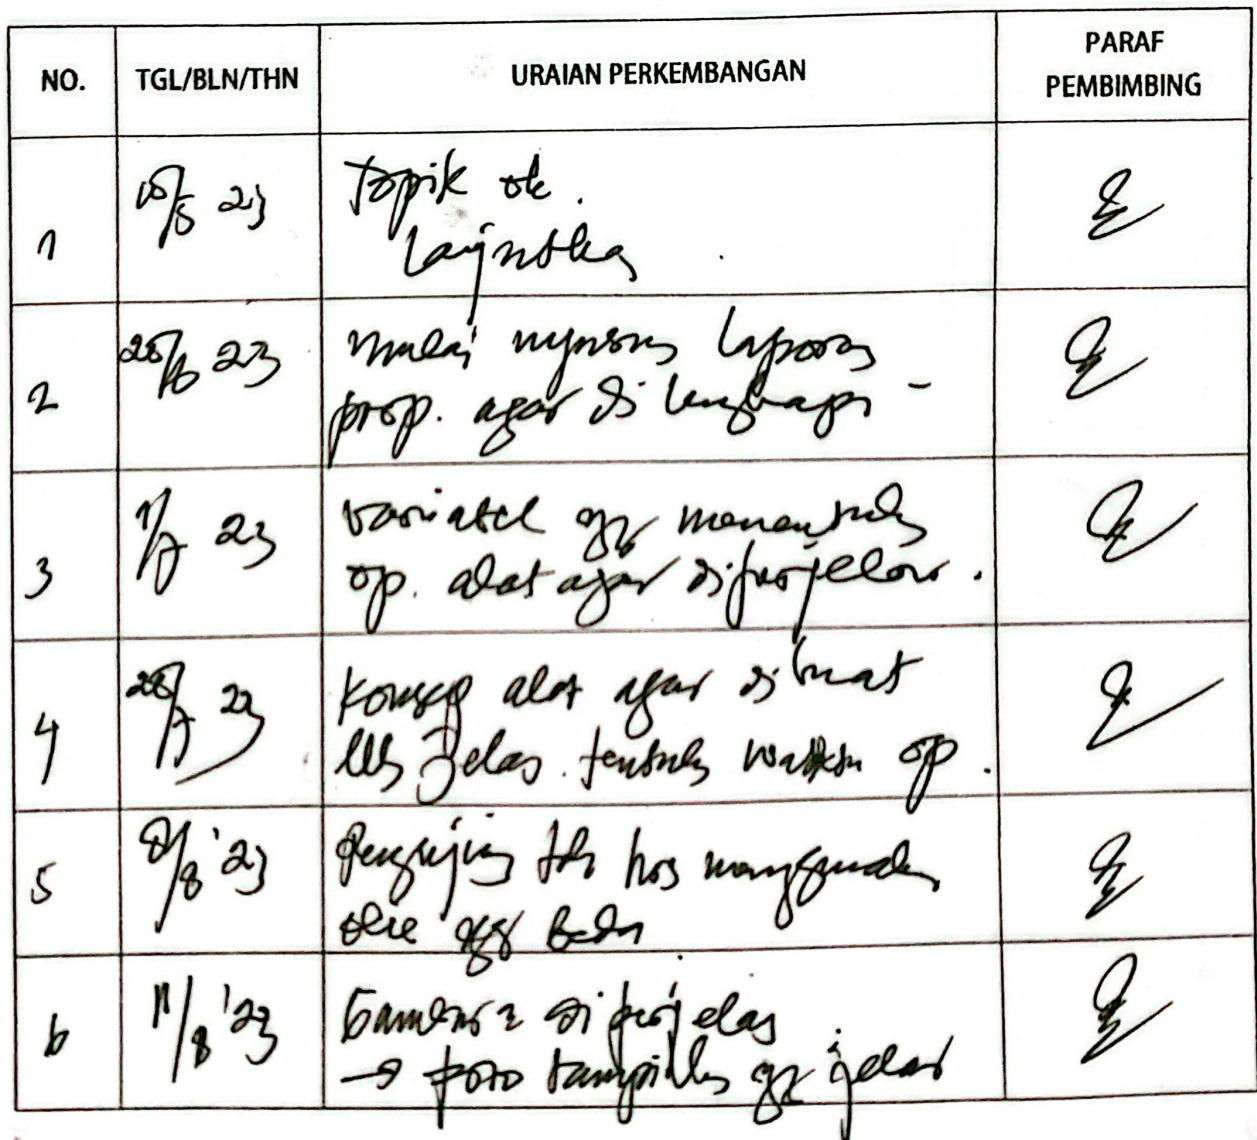 NO.
TGL/BLN/THN
URAIAN PERKEMBANGAN
PARAF
PEMBIMBING
1
15/5 23
topik ok.
lanjutkan
2
23
mulai laporan
prop. agar dilengkapi -
3
1/7 23
variabel yg menentukan
op. alat agar diperjelas.
4
23
konsep alat agar dibuat
lbh jelas. tentukan waktu op.
5
8/8 '23
Pengujian menggunakan
olie yg beda
6
11/8 '23
Gambar2 diperjelas
→ foto tampilkan yg jelas